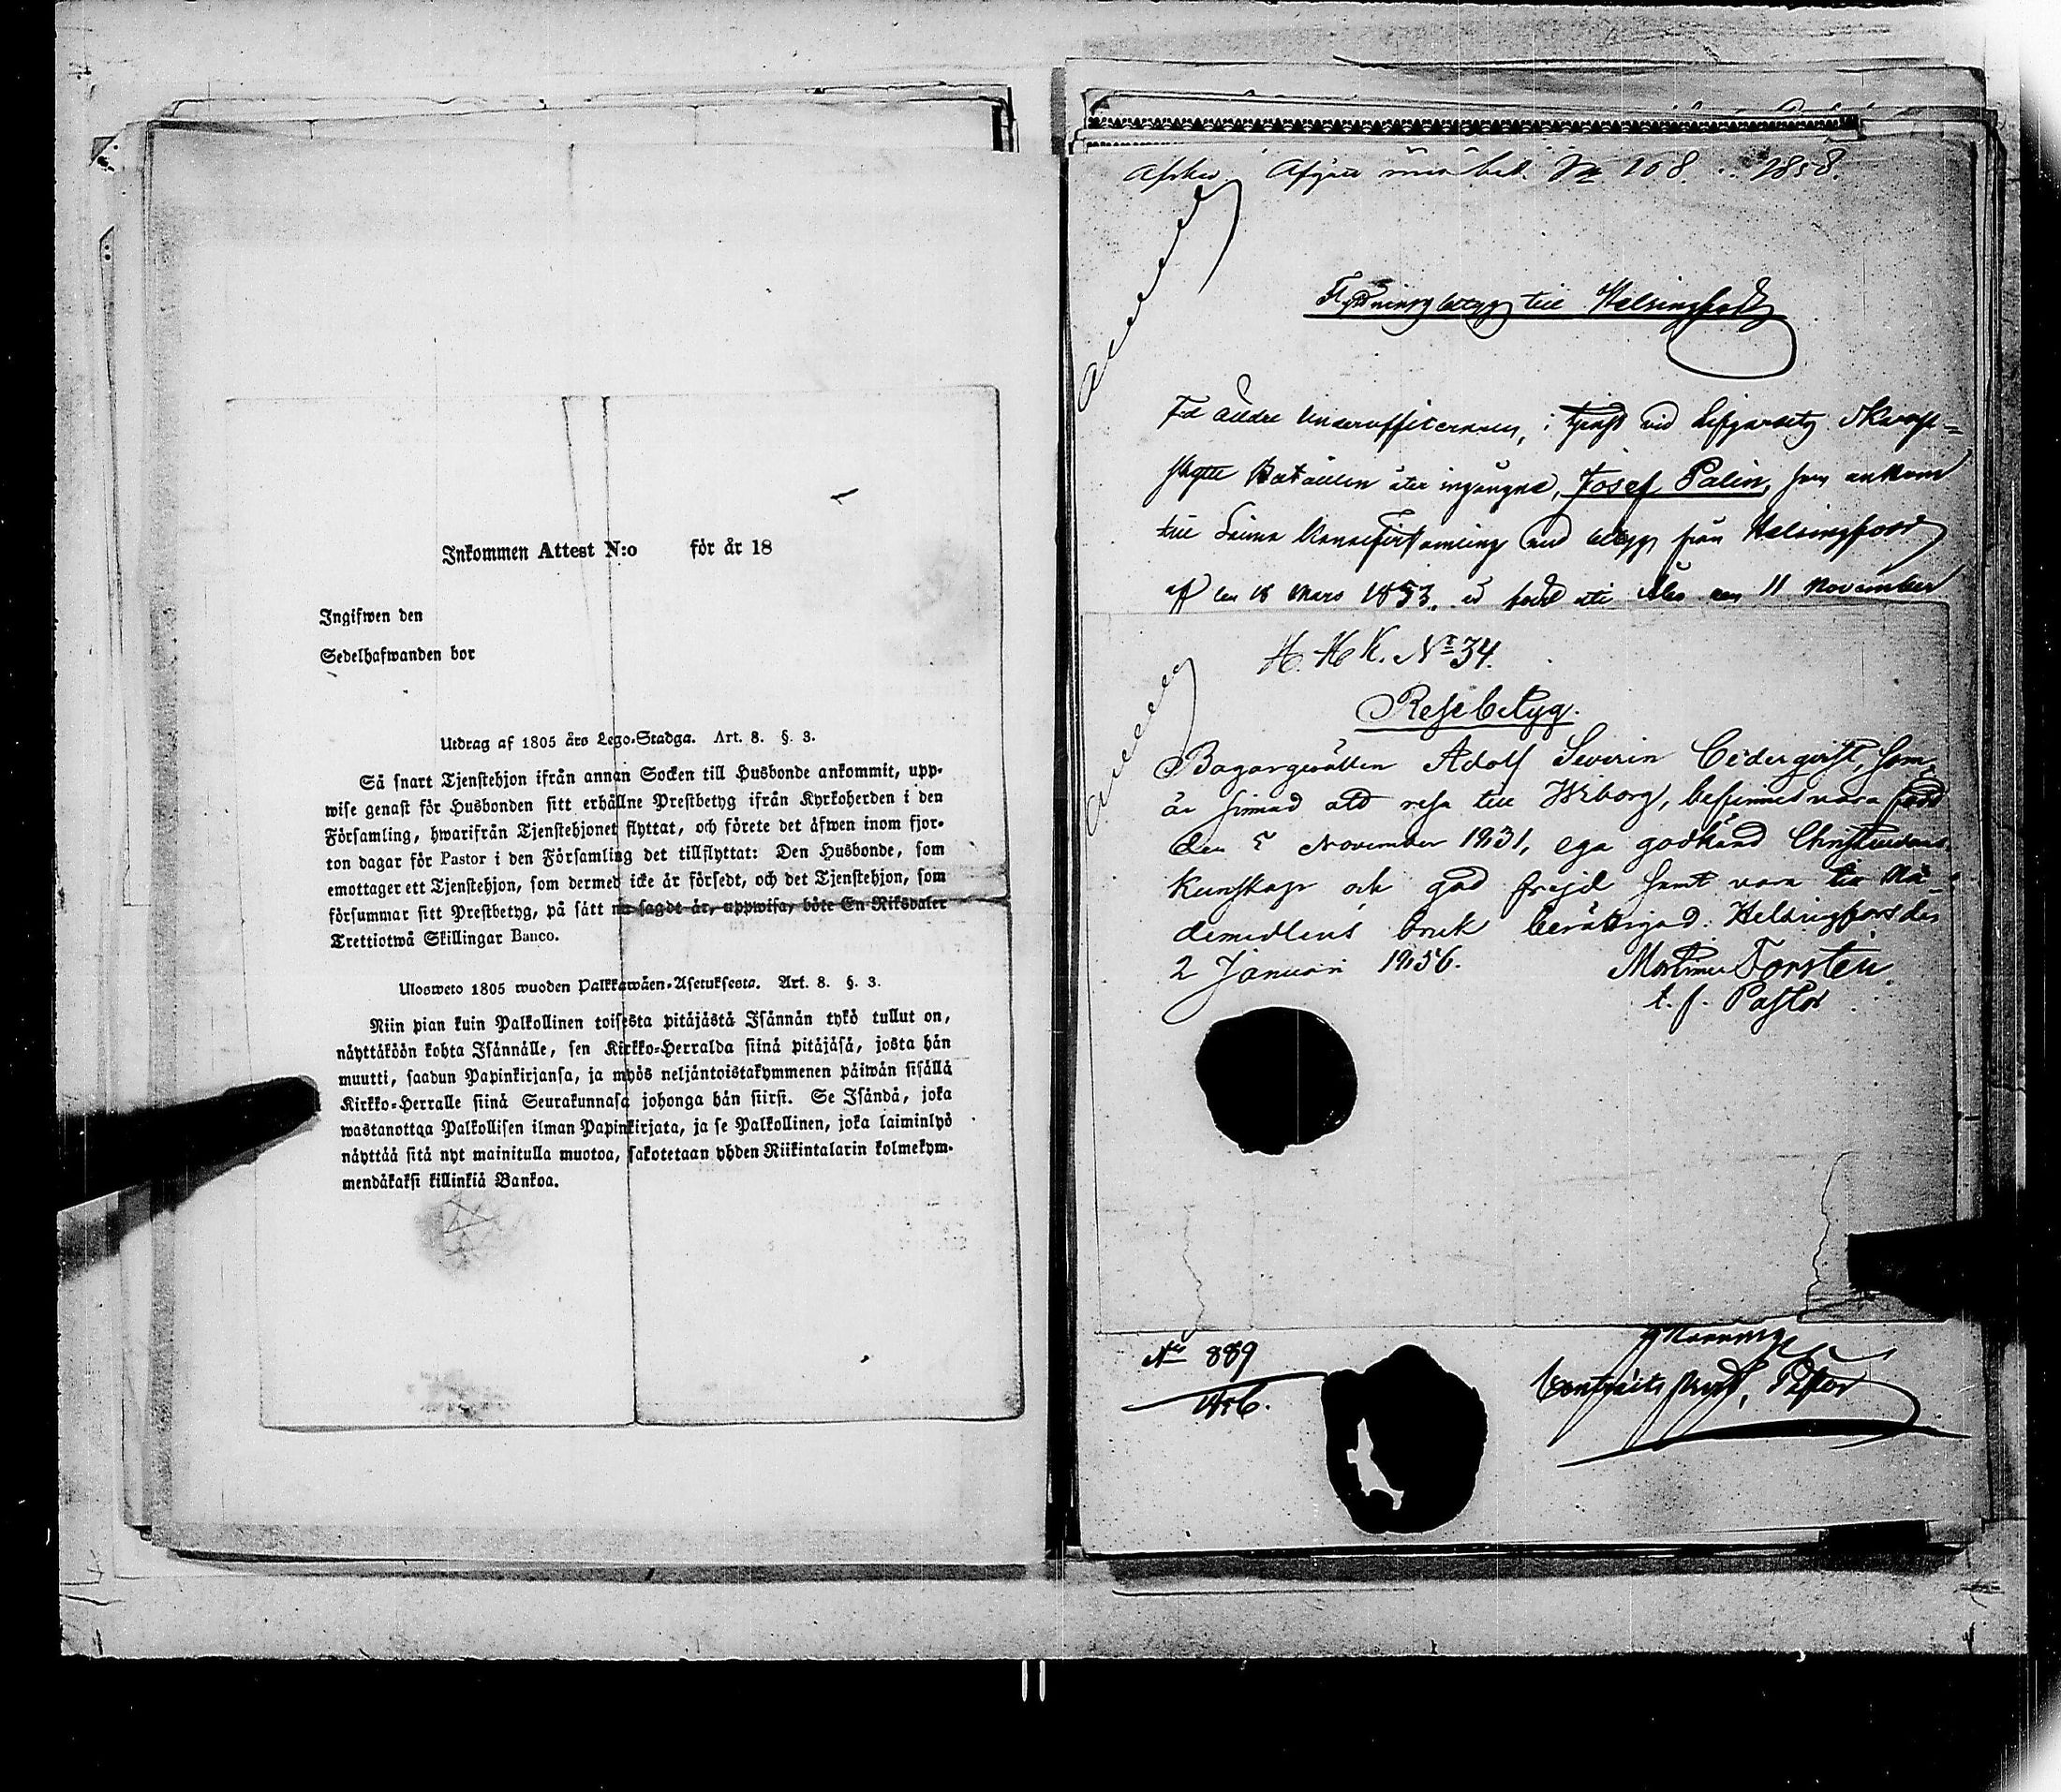 Inkommen Attest N:o för år 18
Ingifwen den
Sedelhafwanden bor
Utdrag af 1805 års Lego-Stadga. Art. 8. §. 3.
Så snart Tjenstehjon ifrån annan Socken till Husbonde ankommit, upp-
wise genast för Husbonden sitt erhållne Prestbetyg ifrån Kyrkoherden i den
Församling, hwarifrån Tjenstehjonet flyttat, och förete det äfwen inom fjor-
ton dagar för Pastor i den Församling det tillflyttat: Den Husbonde, som
emottager ett Tjenstehjon, som dermed icke är försedt, och det Tjenstehjon, som
försummar sitt Prestbetyg, på sätt nu sagdt är, uppwisa, böte En Riksdaler
Trettiotwå Skillingar Banco.
Ulosweto 1805 wuoden Palkkawäen-Asetuksesta. Art. 8. §. 3.
Niin pian kuin Palkollinen toisesta pitäjästä Isännän tykö tullut on,
näyttäköön kohta Isännälle, sen Kirkko-Herralda siinä pitäjäsä, josta hän
muutti, saadun Papinkirjansa, ja myös neljäntoistakymmenen päiwän sisällä
Kirkko-Herralle siinä Seurakunnasa johonga hän siirsi. Se Isändä, joka
wastanottaa Palkollisen ilman Papinkirjata, ja se Palkollinen, joka laiminlyö
näyttää sitä nyt mainitulla muotoa, sakotetaan yhden Riikintalarin kolmekym-
mendäkaksi killinkiä Bankoa.
Afgått 108. 1858.
Flyttningsbetyg till Helsingfors
F.d. äldre Underofficeraren, i tjenst vid Lifgardets Skarp-
skytte Bataillon åter ingångne, Josef Palin, som ankom
till denna Kannsförsamling med betyg från Helsingfors
af den 18 Mars 1853, är född uti Åbo den 11 November
H. H K. No 34.
Resebetyg.
Bagargesällen Adolf Severin Cederqvist, som
är sinnad att resa till Wiborg, befinnes vara född
den 5 November 1831, ega godkänd Christendoms
kunskap och god frejd samt vara till Nå-
demedlens bruk berättigad. Helsingfors den
2 Januari 1856. Mortimer Forstén
t. f. Pastor
No 889
1856.
Contracts Prost, Pastor